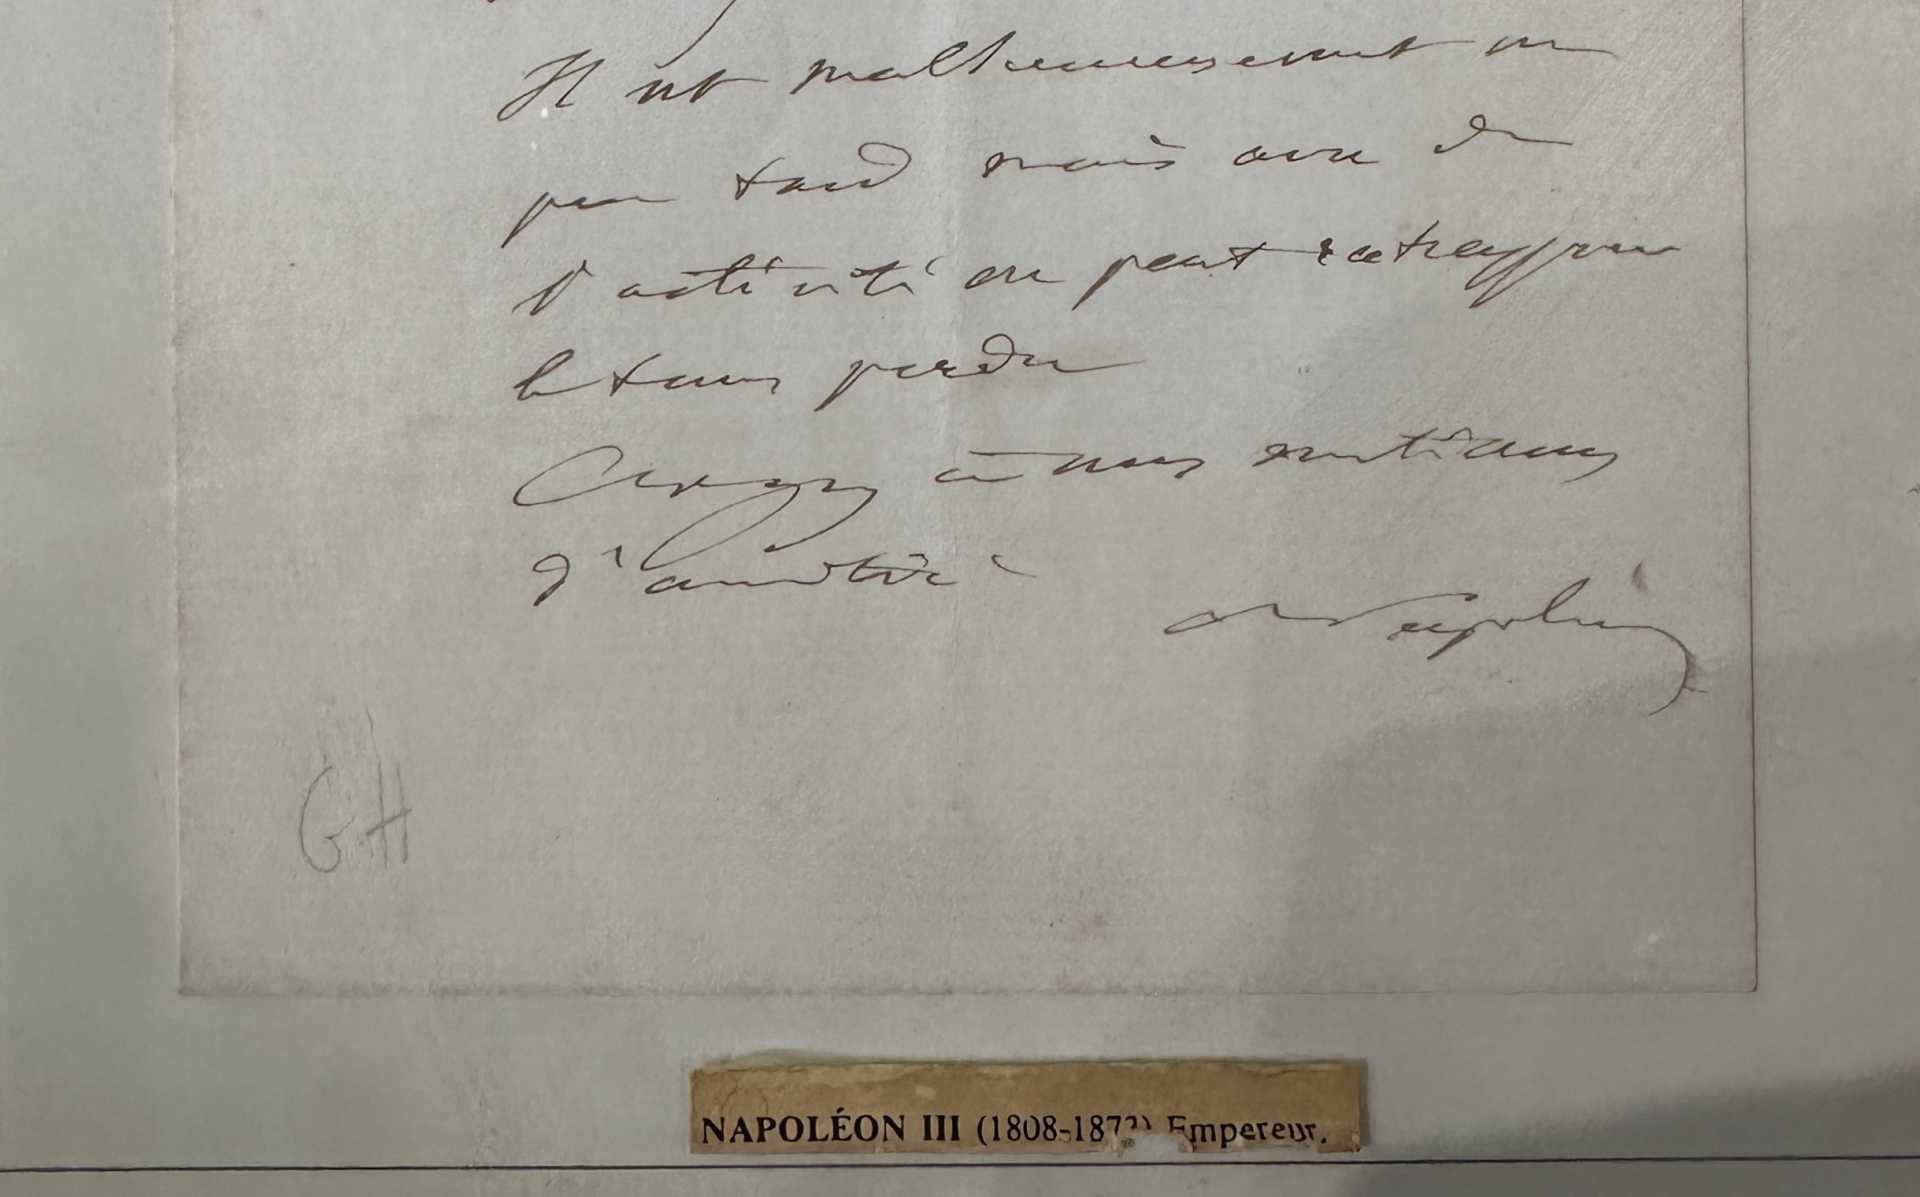 Il est malheureusement un
peu tard mais avec de
l'activité on peut rattrapper
le tems perdu
Croyez à mes sentimens
d'amitié
Napoléon
G.H
NAPOLÉON III (1808-1873) Empereur.